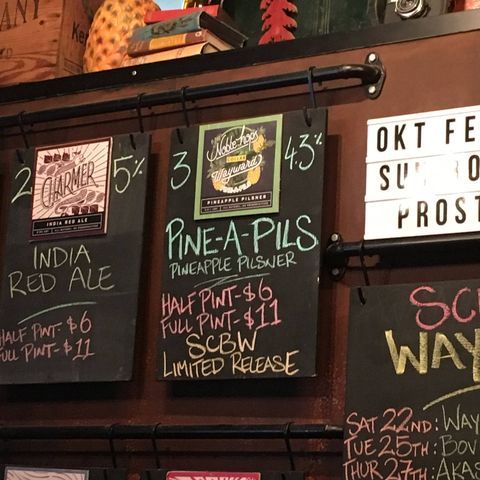 2
CHARMER
INDIA RED ALE
5%
INDIA
RED ALE
HALF PINT-$6
FULL PINT-$11
3
Noble-hops
COLLAB
Wayward
PINEAPPLE PILSNER
4.3%
PINE-A-PILS
PINEAPPLE PILSNER
HALF PINT-$6
FULL PINT-$11
SCBW
LIMITED RELEASE
OKT FE
SU
PROST
SC
WAY
SAT 22ND: WAY
TUE 25TH: BOV
THUR 27TH: AKAS